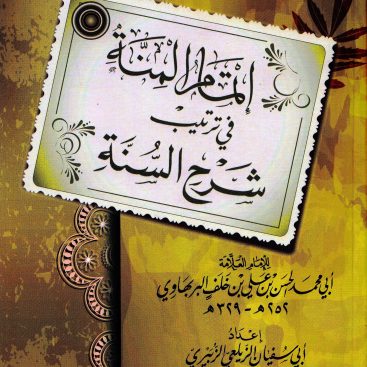 إتمام المنة
في ترتيب
شرح السنة
للإمام العلامة
أبي محمد الحسن بن علي بن خلف البربهاوي
٢٥٢هـ - ٣٢٩هـ
إعداد
أبي سفيان الزيلعي الزبيري